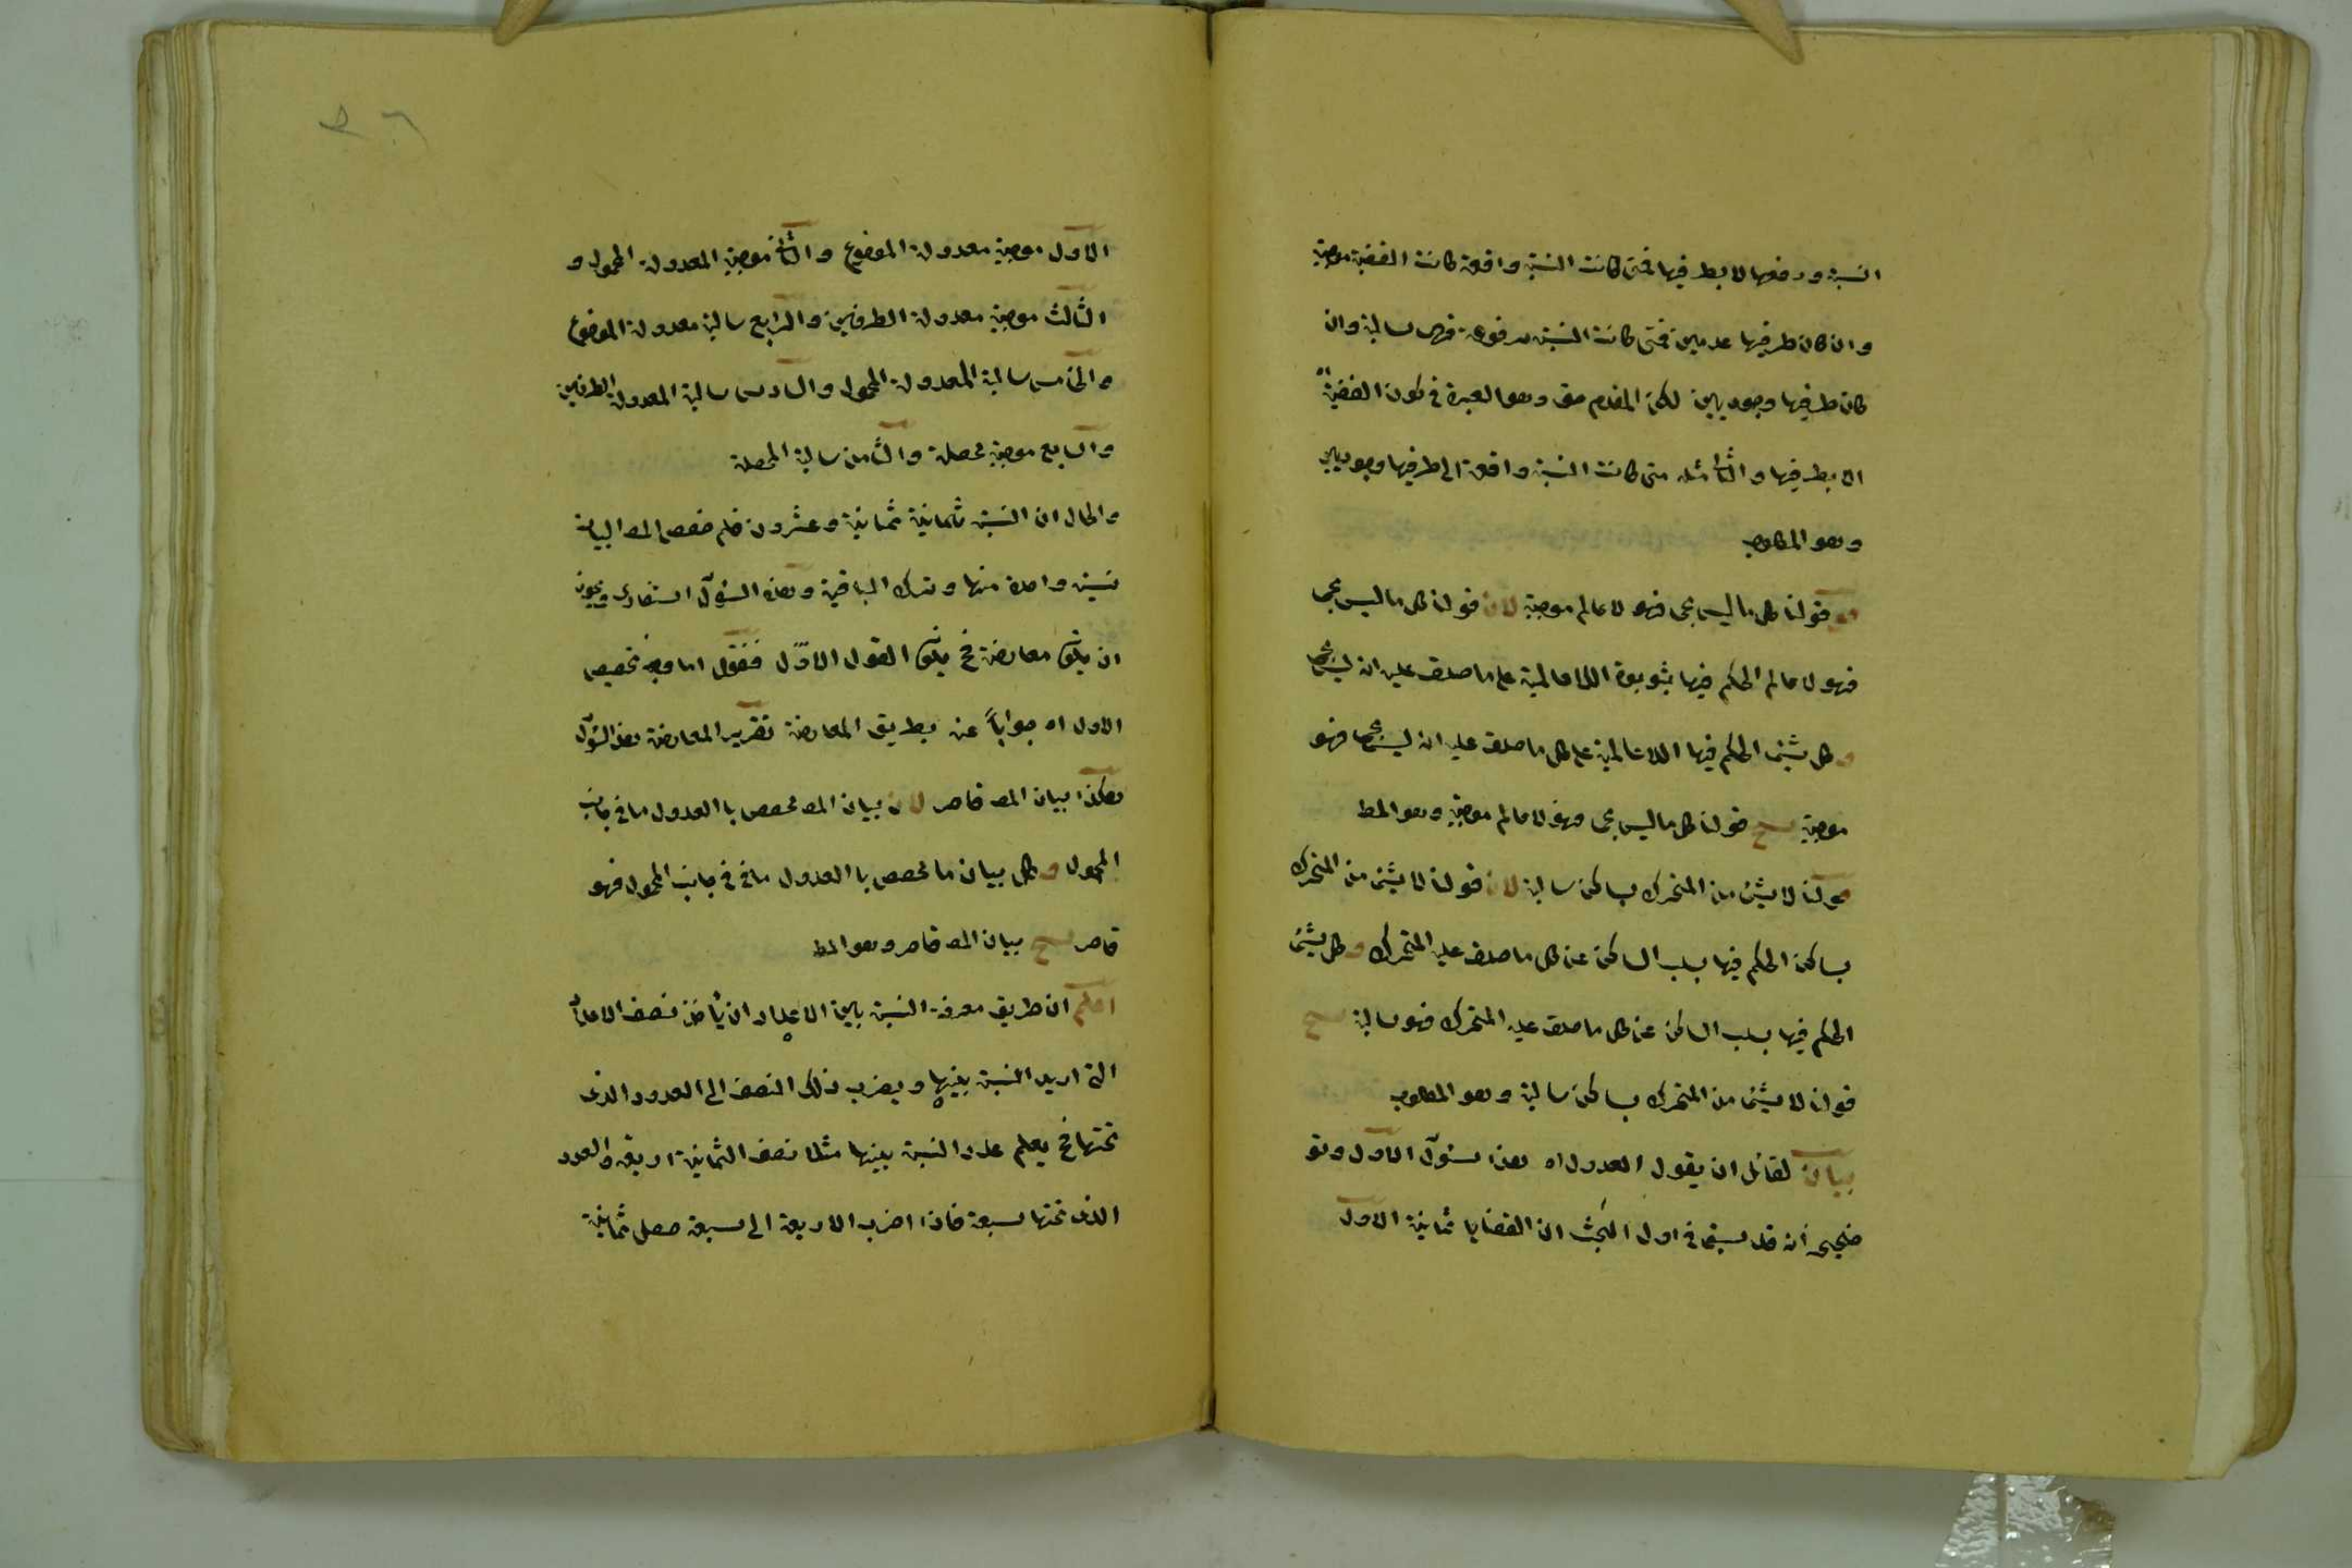 النسبة ورفعها لا بطرفيها فمتى كانت النسبة واقعة كانت القضية موجبة
وان كان طرفيها عدميين فمتى كانت النسبة مرفوعة فهى سالبة وان
كان طرفيها وجوديين لكن المقدم حق وهو العبرة فى كون القضية
الا بطرفيها والتا مثله متى كانت النسبة واقعة الى طرفيها وجوديين
وهو المطلوب
قولنا كل ما ليس بحى فهو لا عالم موجبة لان قولنا كل ما ليس بحى
فهو لا عالم الحكم فيها بثبوت اللاعالمية على ما صدق عليه انه ليس بحى
و كل شيئ الحكم فيها اللاعالمية على كل ما صدق عليه انه ليس بحى فهو
موجبة ينتج قولنا كل ما ليس بحى فهو لا عالم موجبة وهو المط
قولنا لا شيئ من المتحرك بساكن سالبة لان قولنا لا شيئ من المتحرك
بساكن الحكم فيها بسلب الساكن عن كل ما صدق عليه المتحرك و كل شيئ
الحكم فيها بسلب الساكن عن كل ما صدق عليه المتحرك فهو سالبة ينتج
قولنا لا شيئ من المتحرك بساكن سالبة وهو المطلوب
بيان لقائل ان يقول العدول اه هذا سئوآل الاول وتو
ضيحى انه قد سبق فى اول البحث ان القضايا ثمانية الاول
الاول موجبة معدولة الموضوع والثانى موجبة المعدولة المحمول و
الثالث موجبة معدولة الطرفين والرابع سالبة معدولة الموضوع
والخامس سالبة المعدولة المحمول والسادس سالبة المعدولة الطرفين
والسابع موجبة محصلة والثامن سالبة المحصلة
والحال ان النسبة بثمانية ثمانية وعشرون فلم خصص المص البيان
نسبة واحدة منها وترك الباقية وهذه السؤآل استفسارى ويجوز
ان يكون معارضة فح يكون القول الاوّل فنقول اما وجه تخصيص
الاول اه جواباً عن بطريق المعارضة تقرير المعارضة هذا السؤل
هكذا بيان المص قاصر لان بيان المص مخصص با العدول ما فى جانب
المحمول و كل بيان ما مخصص با العدول ما فى فى جانب المحمول فهو
قاصر ينتج بيان المص قاصر وهو المط
اعلم ان طريق معرفة النسبة بين الاعداد ان يأخذ نصف الاعداد
التى اريد النسبة بينها ويضرب ذلك النصف الى العدود الذى
تحتها فح يعلم عدد النسبة بينها مثلا نصف الثمانية اربعة والعدد
الذى تحتها سبعة فاذا اضرب الاربعة الى سبعة حصل ثمانية